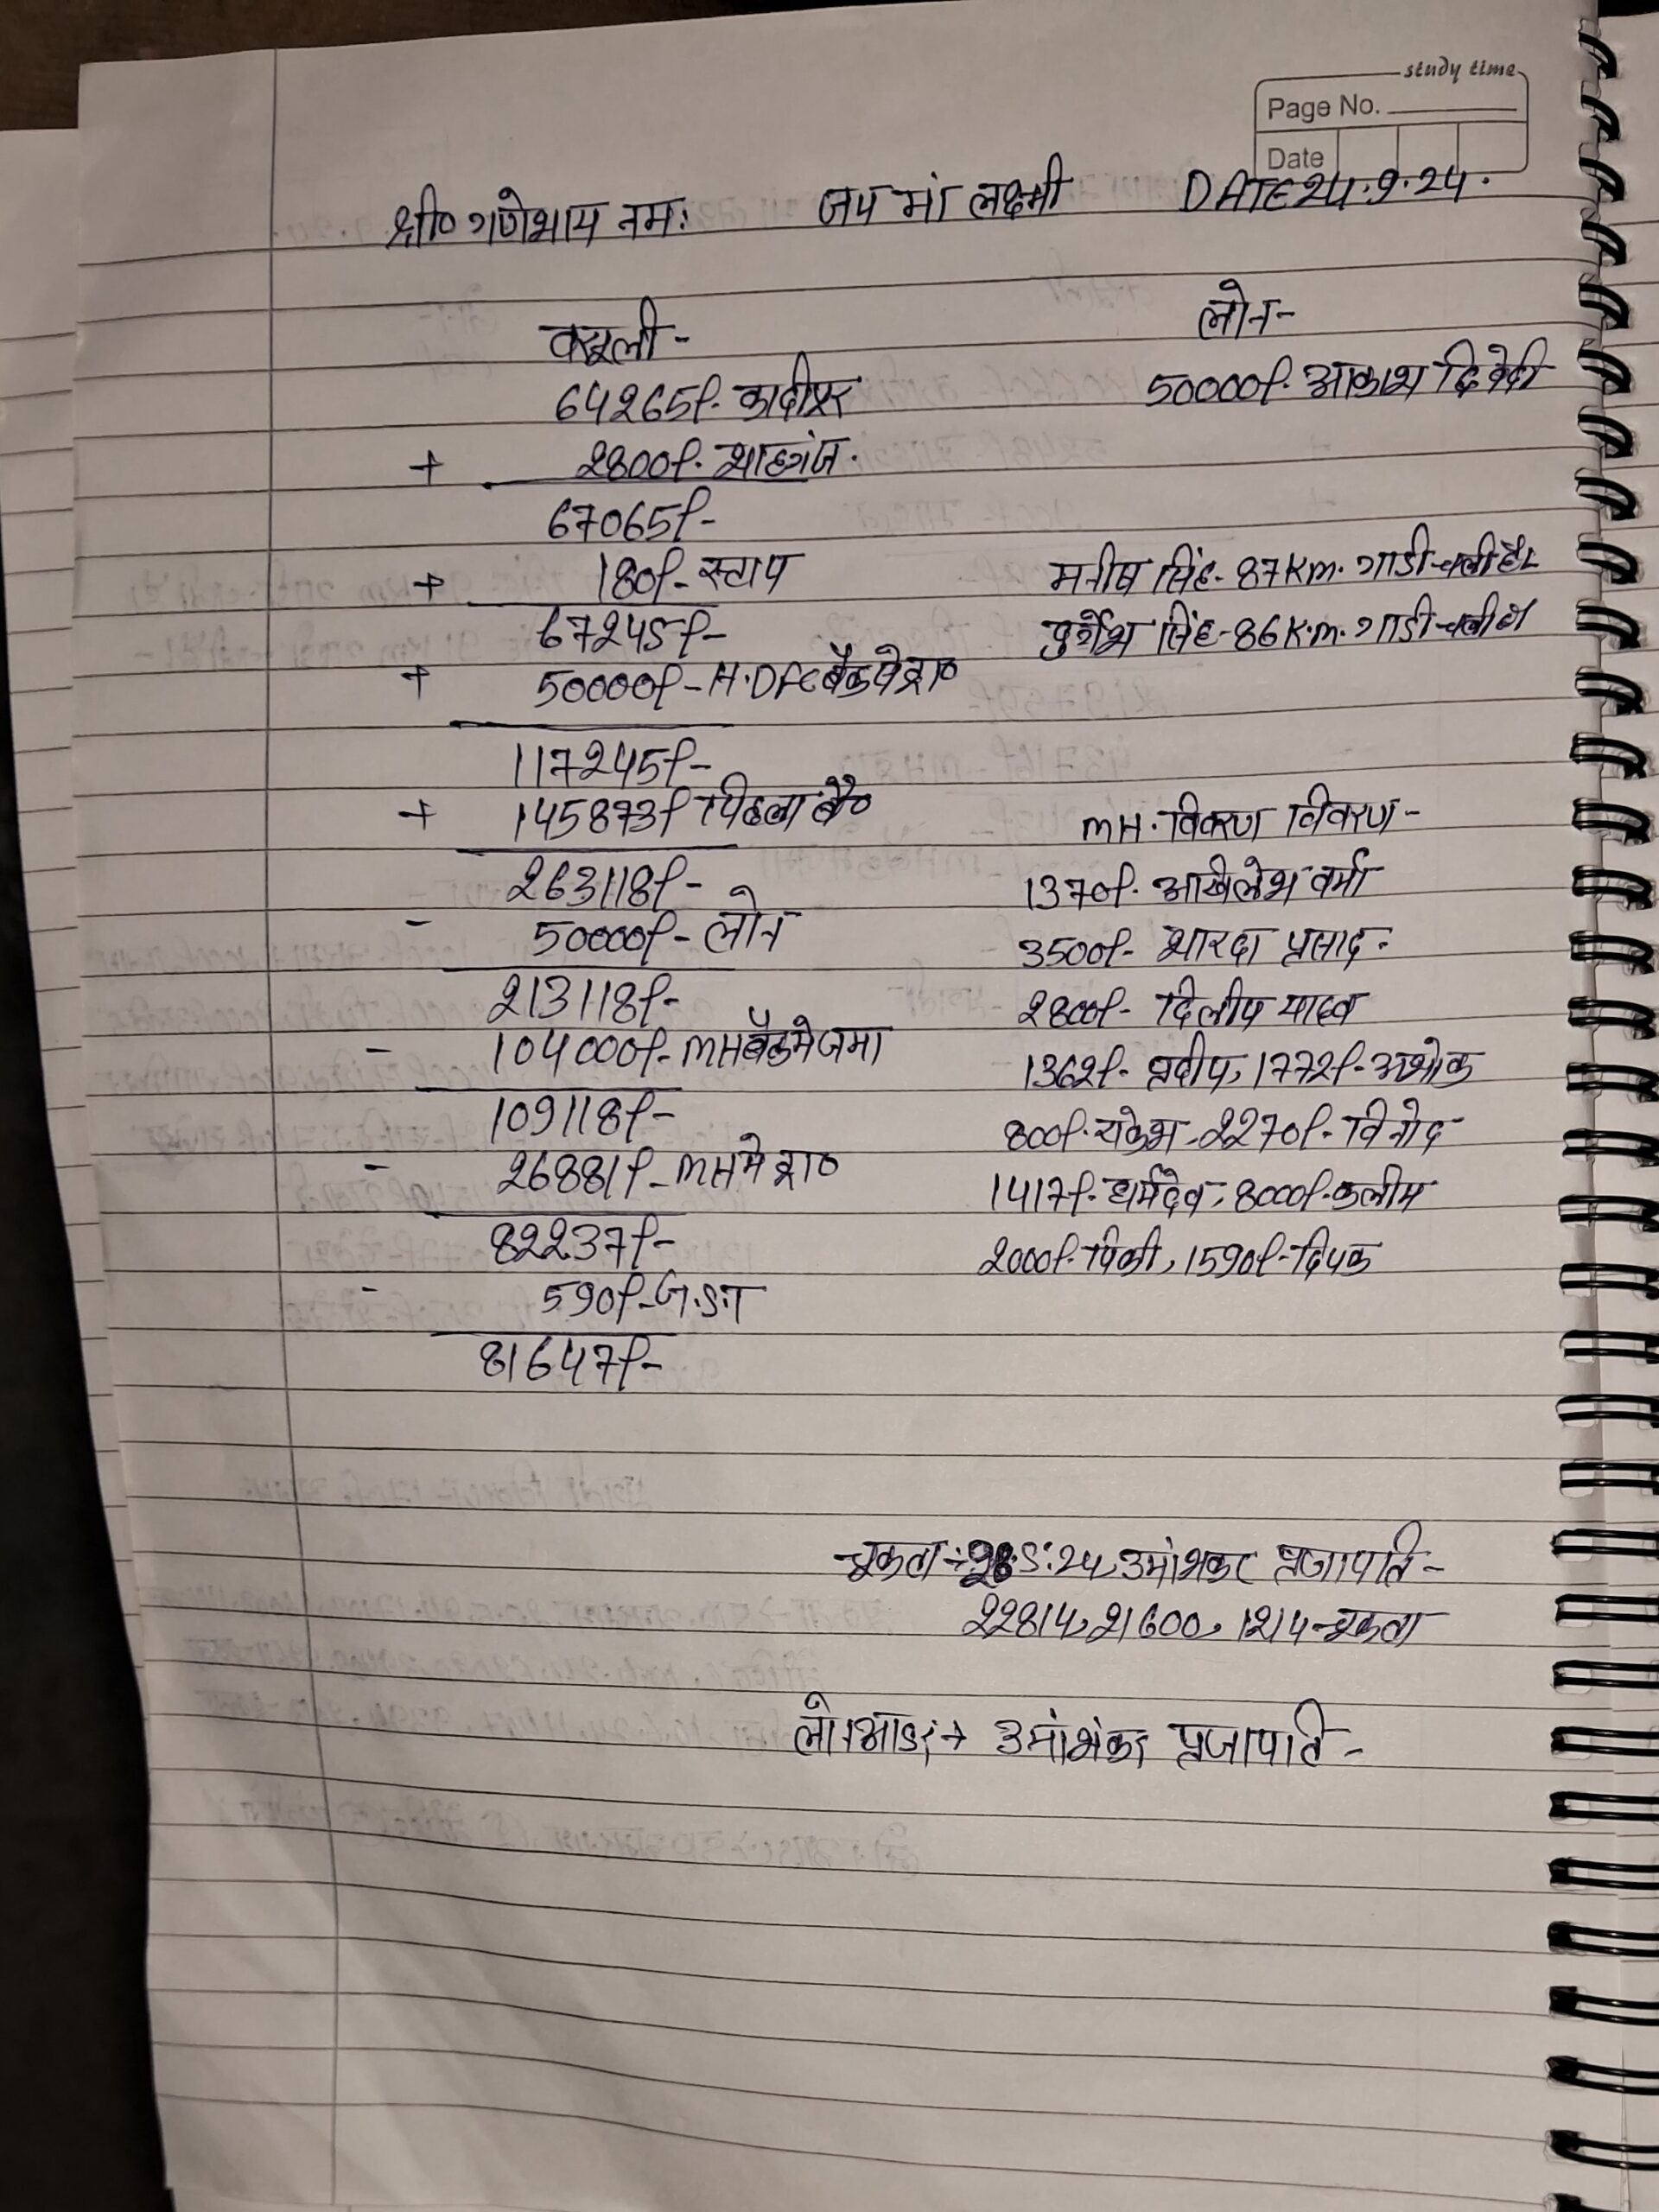 study time
Page No.
Date
श्री० गणेशाय नमः जय मां लक्ष्मी DATE 24.9.24.
वसूली - लोन-
64265/- कादीपुर 50000/- आकाश द्विवेदी
+ 2800/- शाहगंज.
67065/-
+ 180/- स्टाप मनीष सिंह- 87Km. गाडी चली है
67245/- दुर्गेश सिंह- 86 K.m. गाडी चली है
+ 50000/- H.DFC बैंक से प्रा०
117245/-
+ 145873/- पिछला बै० MH. विवरण विवरण -
263118/- 1370/- अखिलेश वर्मा
- 50000/- लोन 3500/- शारदा प्रसाद -
213118/- 2800/- दिलीप यादव
- 104000/- MH बैंक मे जमा 1362/- प्रदीप, 1772/- अशोक
109118/- 800/- राकेश - 2270/- विनोद
- 26881/- MH मे प्रा० 1417/- धर्मदेव, 8000/- कलीम
82237/- 2000/- पिंकी, 1590/- दिपक
- 590/- G.S.T
81647/-
चुकता → 28.5.24, उमांशंकर प्रजापति -
22814, 21600, 1214 - चुकता
लोन आर्डर → उमांशंकर प्रजापति -